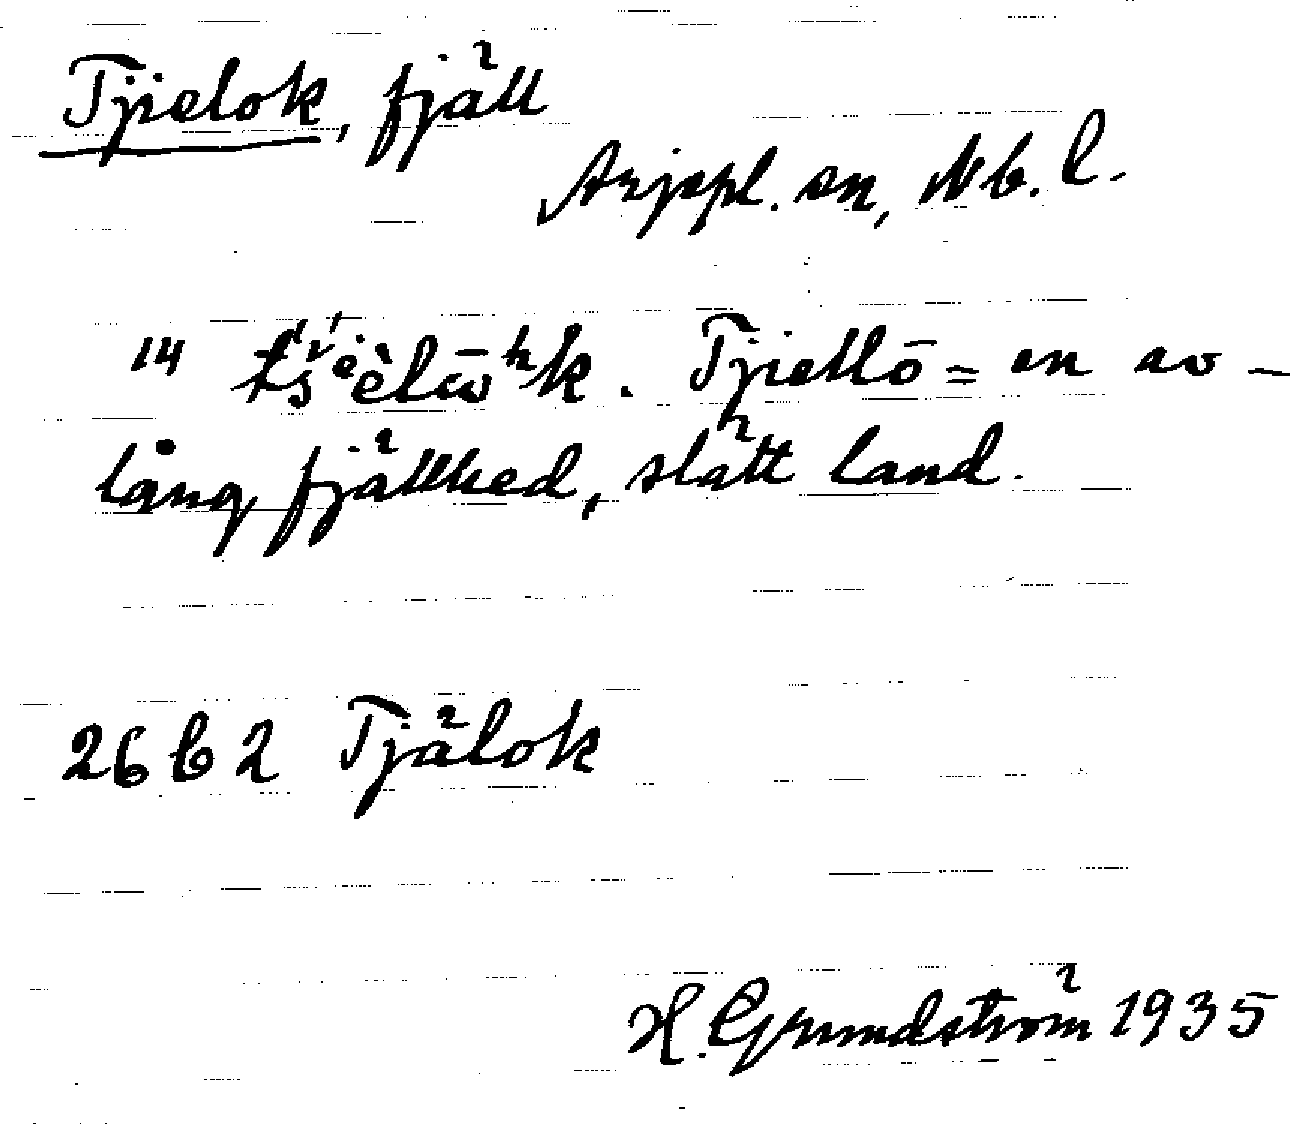 Tjielok, fjäll
Arjepl. sn, Nb. l.
14 . Tjiellō = en av-
lång fjällhed, slätt land.
26 b 2 Tjälok
H. Grundström 1935